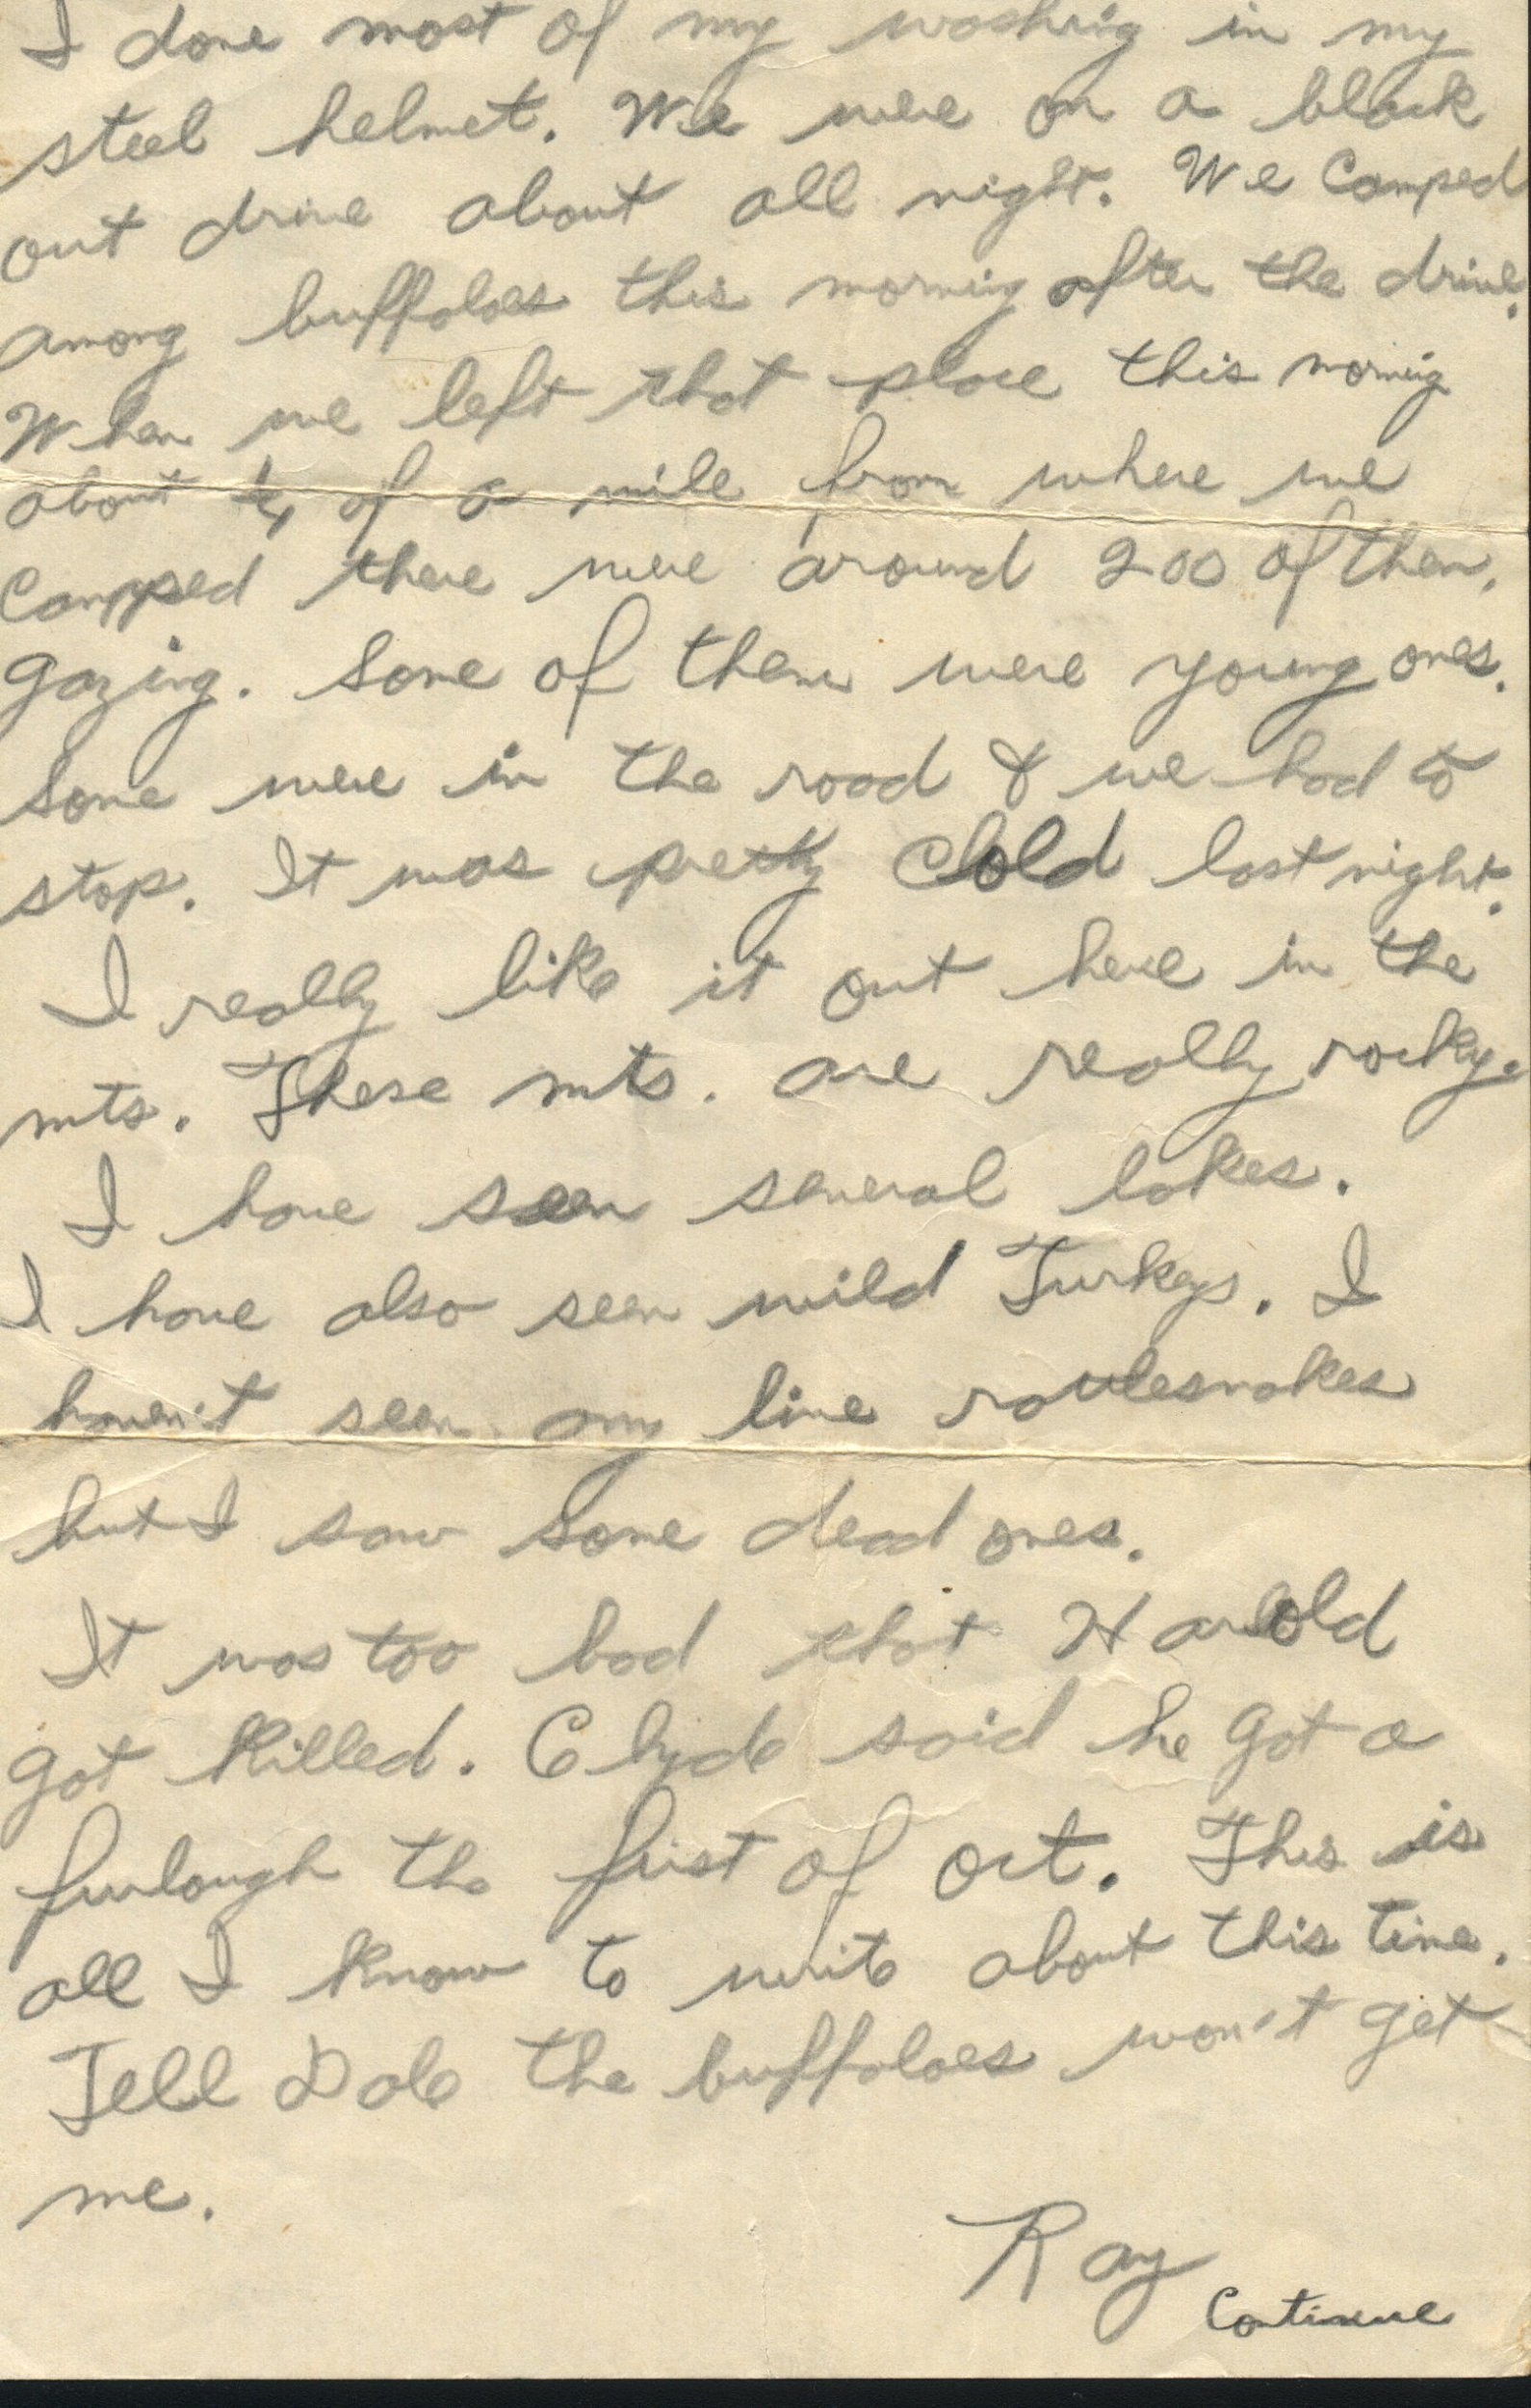 I done most of my washing in my
steel helmet. We were on a black
out drive about all night. We Camped
among buffaloes this morning after the drive.
When we left that place this morning
about ¼ of a mile from where we
Campped there were around 200 of them,
gazing. Some of them were young ones.
Some were in the road & we had to
stop. It was pretty Cold last night.
I really like it out here in the
mts. These mts. are really rocky.
I have seen several lakes.
I have also seen wild Turkeys. I
haven't seen any live rattlesnakes
but I saw some dead ones.
It was too bad that Harold
got killed. Clyde said he got a
furlough the first of Oct. This is
all I know to write about this time.
Tell Dale the buffaloes won't get
me.
Ray
Continue